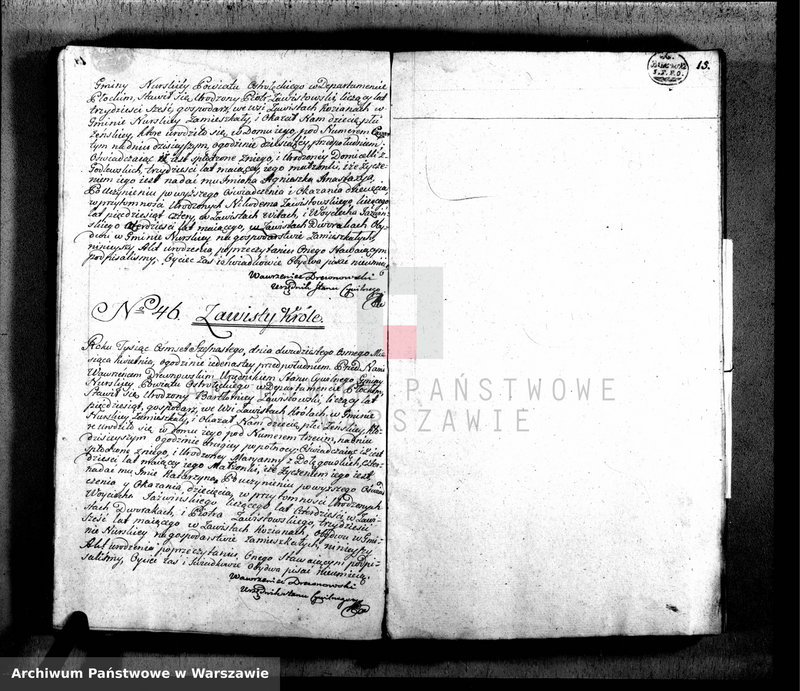 Gminy Nurskiey Powiatu Ostrołęckiego w Departamencie
Płockim, Stawił się Urodzony Piotr Zawistowski, liczący lat
trzydzieści sześć, gospodarz, we wsi Zawistach Kozianach w
Gminie Nurskiey Zamieszkały, i Okazał Nam dziecię płci
żeńskiey, które urodziło się, w Domu iego, pod Numerem
tym na dniu dzisieyszym, o godzinie dziesiątey, przed południem,
Oświadczając iż iest spłodzone z niego, i Urodzoney Domicelli z
Godlewskich, trzydzieści lat maiącey, iego małżonki, i że życze-
niem iego iest nadać mu Imiona Agnieszka Anastazya,
Po uczynieniu powyższego Oświadczenia i Okazania dziecięcia,
w przytomności Urodzonych Zawistowskiego liczącego
lat pięćdziesiąt cztery, w Zawistach Witkach, i Woyciecha Jaźwiń-
skiego czterdzieści lat maiącego, w Zawistach Dworakach Oby-
dwu w Gminie Nurskiey na gospodarstwie Zamieszkałych,
ninieyszy Akt urodzenia po przeczytaniu Onego Stawaiącym
podpisaliśmy, Oyciec zaś i Swiadkowie Obydwa pisać nieumieią
Wawrzeniec Drewnowski
Urzędnik Stanu Cywilnego
No 46. Zawisty Króle.
Roku Tysiąc Ośmset Szesnastego, dnia dwudziestego ósmego Mie-
siąca kwietnia, o godzinie iedenastey przed południem. Przed Nami
Wawrzeńcem Drewnowskim Urzędnikiem Stanu Cywilnego Gminy
Nurskiey, Powiatu Ostrołęckiego w Departamencie Płockim,
Stawił się Urodzony Bartłomiey Zawistowski, liczący lat
pięćdziesiąt, gospodarz, we Wsi Zawistach Królach, w Gminie
Nurskiey Zamieszkały, i Okazał Nam dziecię, płci Żeńskiey, któ-
re urodziło się w domu iego pod Numerem trzecim, na dniu
dzisieyszym o godzinie drugiey po północy, Oświadczaiąc iż iest
spłodzone z niego, i Urodzoney Maryanny z Czter-
dzieści lat maiącey iego Małżonki, i że Życzeniem iego iest
nadać mu Imie Katarzyna, Po uczynieniu powyższego Oświad-
czenia y Okazania dziecięcia, w przytomności Urodzonych
Woyciecha Jaźwińskiego liczącego lat Czterdzieści, w Zawi-
stach Dworakach, i Piotra Zawistowskiego, trzydzieści
sześć lat maiącego w Zawistach Kozianach, obydwu w Gmi-
nie Nurskiey na gospodarstwie zamieszkałych, ninieyszy
Akt urodzenia po przeczytaniu Onego Stawaiącym podpi-
saliśmy, Oyciec zaś i Swiadkowie Obydwa pisać nieumieią.
Wawrzeniec Drewnowski
Urzędnik stanu Cywilnego
13.
PAŃSTWOWE
SZAWIE
Archiwum Państwowe w Warszawie